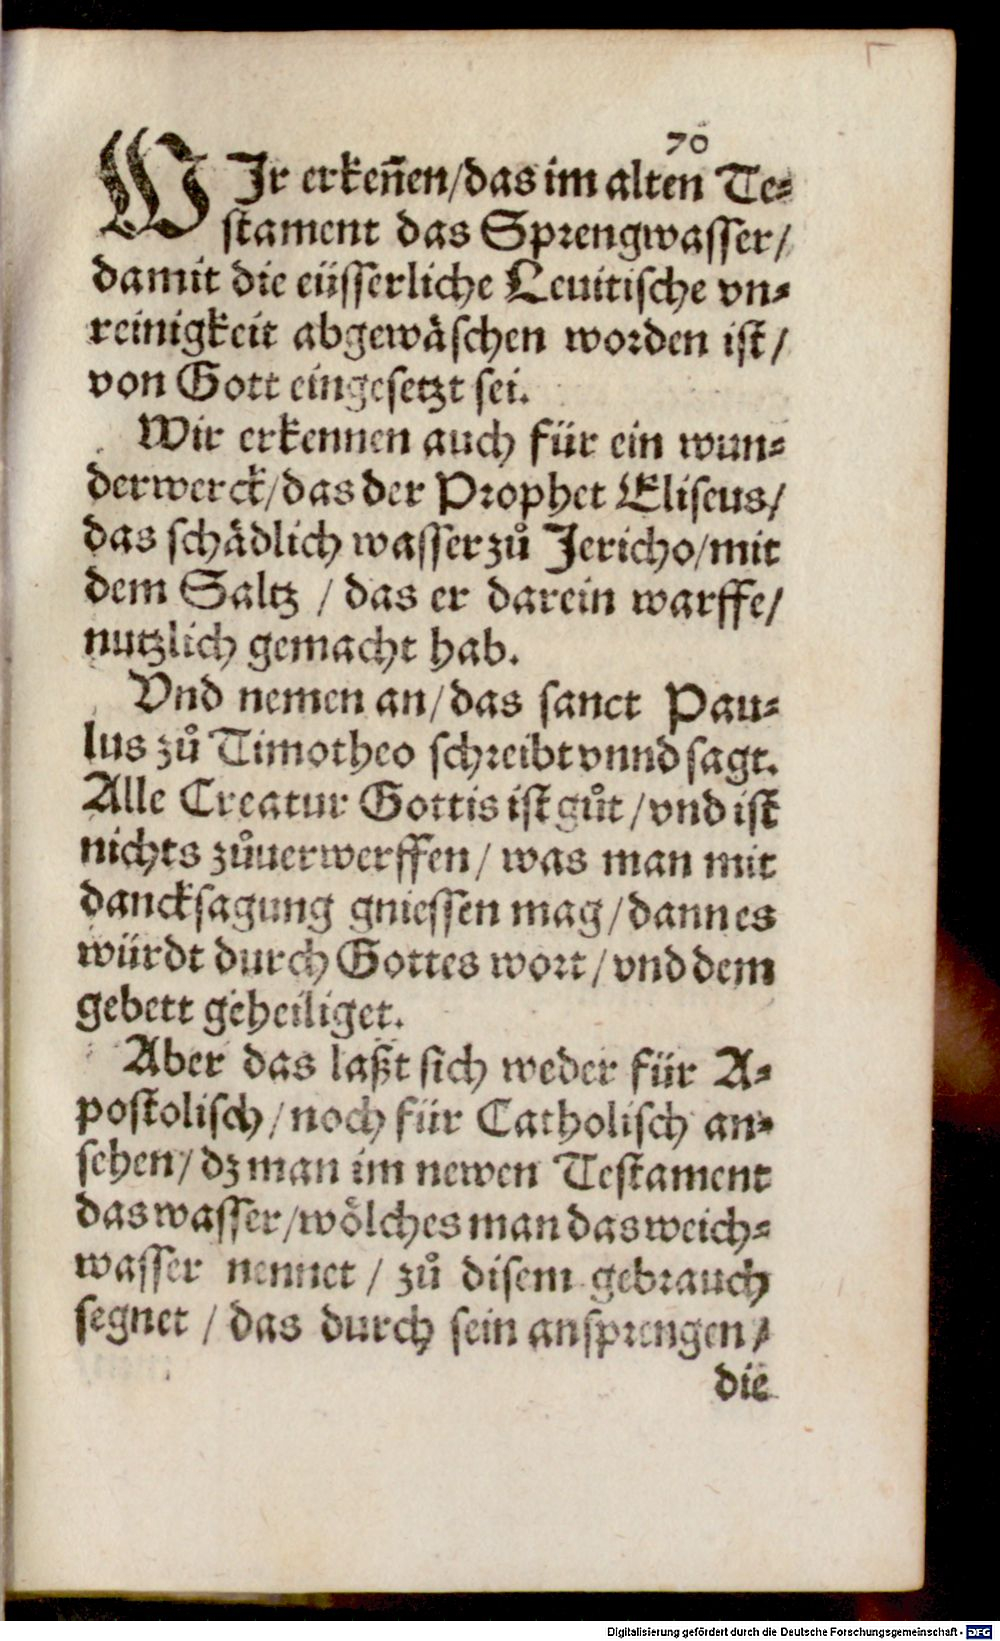 70
WIr erkeñen/das im alten Te⸗
stament das Sprengwasser/
damit die eüsserliche Leuitische vn⸗
reinigkeit abgewäschen worden ist/
von Gott eingesetzt sei.
Wir erkennen auch für ein wun⸗
derwerck/das der Prophet Eliseus/
das schädlich wasser zů Jericho/mit
dem Saltz / das er darein warffe/
nutzlich gemacht hab.
Vnd nemen an/das sanct Pau⸗
lus zů Timotheo schreibt vnnd sagt.
Alle Creatur Gottis ist gůt/vnd ist
nichts zůuerwerffen/ was man mit
dancksagung gniessen mag/dann es
würdt durch Gottes wort/vnd dem
gebett geheiliget.
Aber das laßt sich weder für A⸗
postolisch/noch für Catholisch an⸗
sehen/dz man im newen Testament
das wasser/wölches man das weich⸗
wasser nennet / zů disem gebrauch
segnet / das durch sein ansprengen/
die
Digitalisierung gefördert durch die Deutsche Forschungsgemeinschaft - DFG